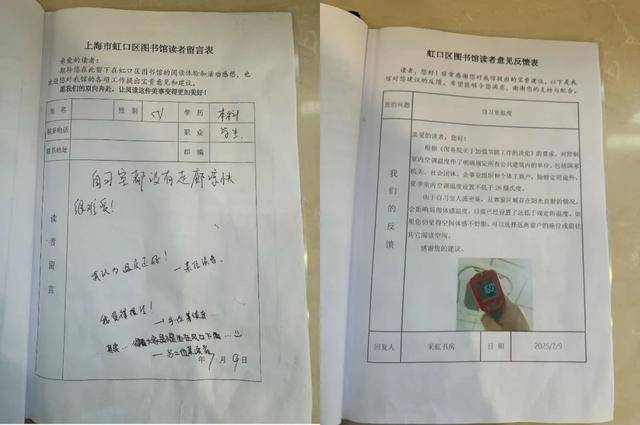 上海市虹口区图书馆读者留言表
亲爱的读者：
期待您在此留下在虹口区图书馆的阅读体验和活动感想，也
欢迎您对我馆的各项工作提出宝贵意见和建议。
愿我们的双向奔赴，让阅读这件美事变得更加美好！
姓名
性别
学历 本科
联系电话
职业 学生
联系地址
邮编
读者留言
自习室都没有走廊凉快
很难受！
我认为温度还好！
我觉得挺凉！
其实
年7月9日
虹口区图书馆读者意见反馈表
读者，您好！非常感谢您对我馆提出的宝贵建议，以下是我
馆对您建议的反馈，希望能够令您满意，谢谢您的支持与配合。
您的问题
自习室温度
我们的反馈
亲爱的读者：您好！
根据《国务院关于加强节能工作的决定》的要求，对控制
室内空调温度作了明确规定所有公共建筑内的单位，包括国家
机关、社会团体、企事业组织和个体工商户，除特定用途外，
夏季室内空调温度设置不低于26摄氏度。
由于自习室人流密集，且靠窗区域存在阳光直射的情况，
会影响局部体感温度。目前已经设置了远低于规定的温度。如
果您仍觉得空间体感不舒服，可以选择远离窗户的座位或前往
其它阅读空间。
感谢您的建议。
回复人
采虹书房
日期
2025/7/9